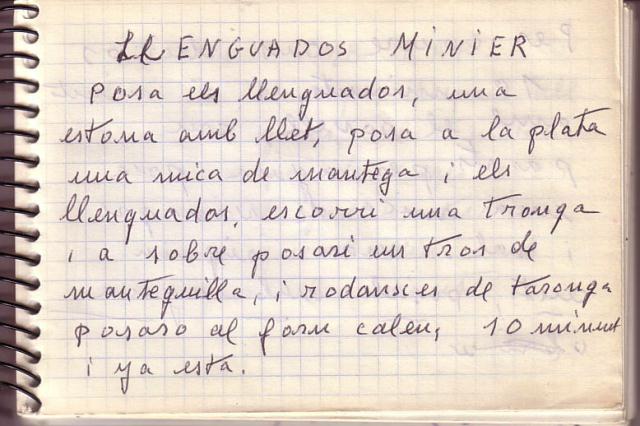 LLENGUADOS MINIER
Posa els llenguados, una
estona amb llet, posa a la plata
una mica de mantega i els
llenguados, escorri una tronga
i a sobre posari un tros de
mantequilla, i rodanxes de taronga
posaro al forn calen, 10 minut
i ya esta.